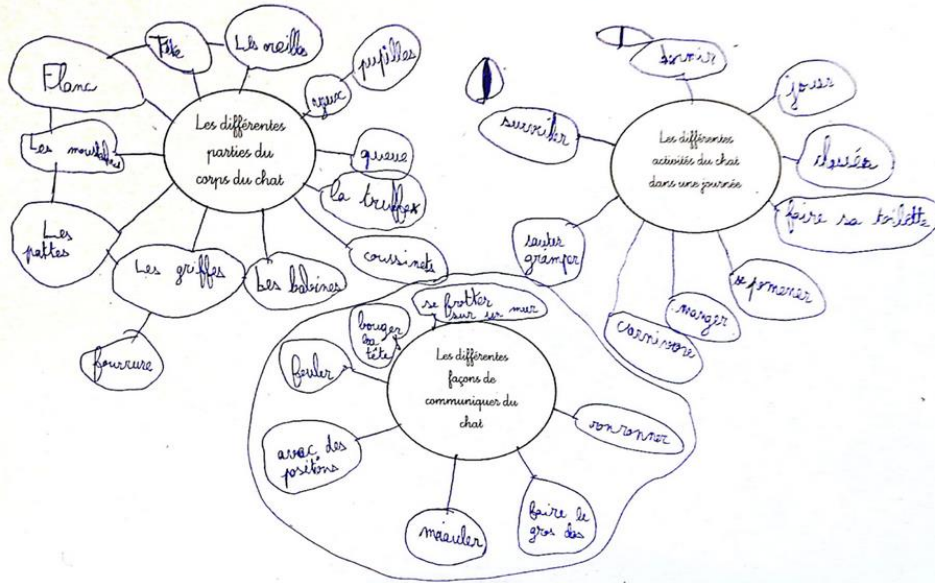 Les différentes
parties du
corps du chat
Flanc
Tête
Les oreilles
yeux
pupilles
queue
la truffe
coussinets
Les babines
Les griffes
fourrure
Les
pattes
Les moustaches
Les différentes
activités du chat
dans une journée
dormir
jouer
faire sa toilette
se pomener
manger
carnivore
sauter
gramper
surviller
Les différentes
façons de
communiquer du
chat
se frotter
sur un mur
bouger
la
tête
feuler
avac des
positons
miauler
faire le
gros dos
ronronner